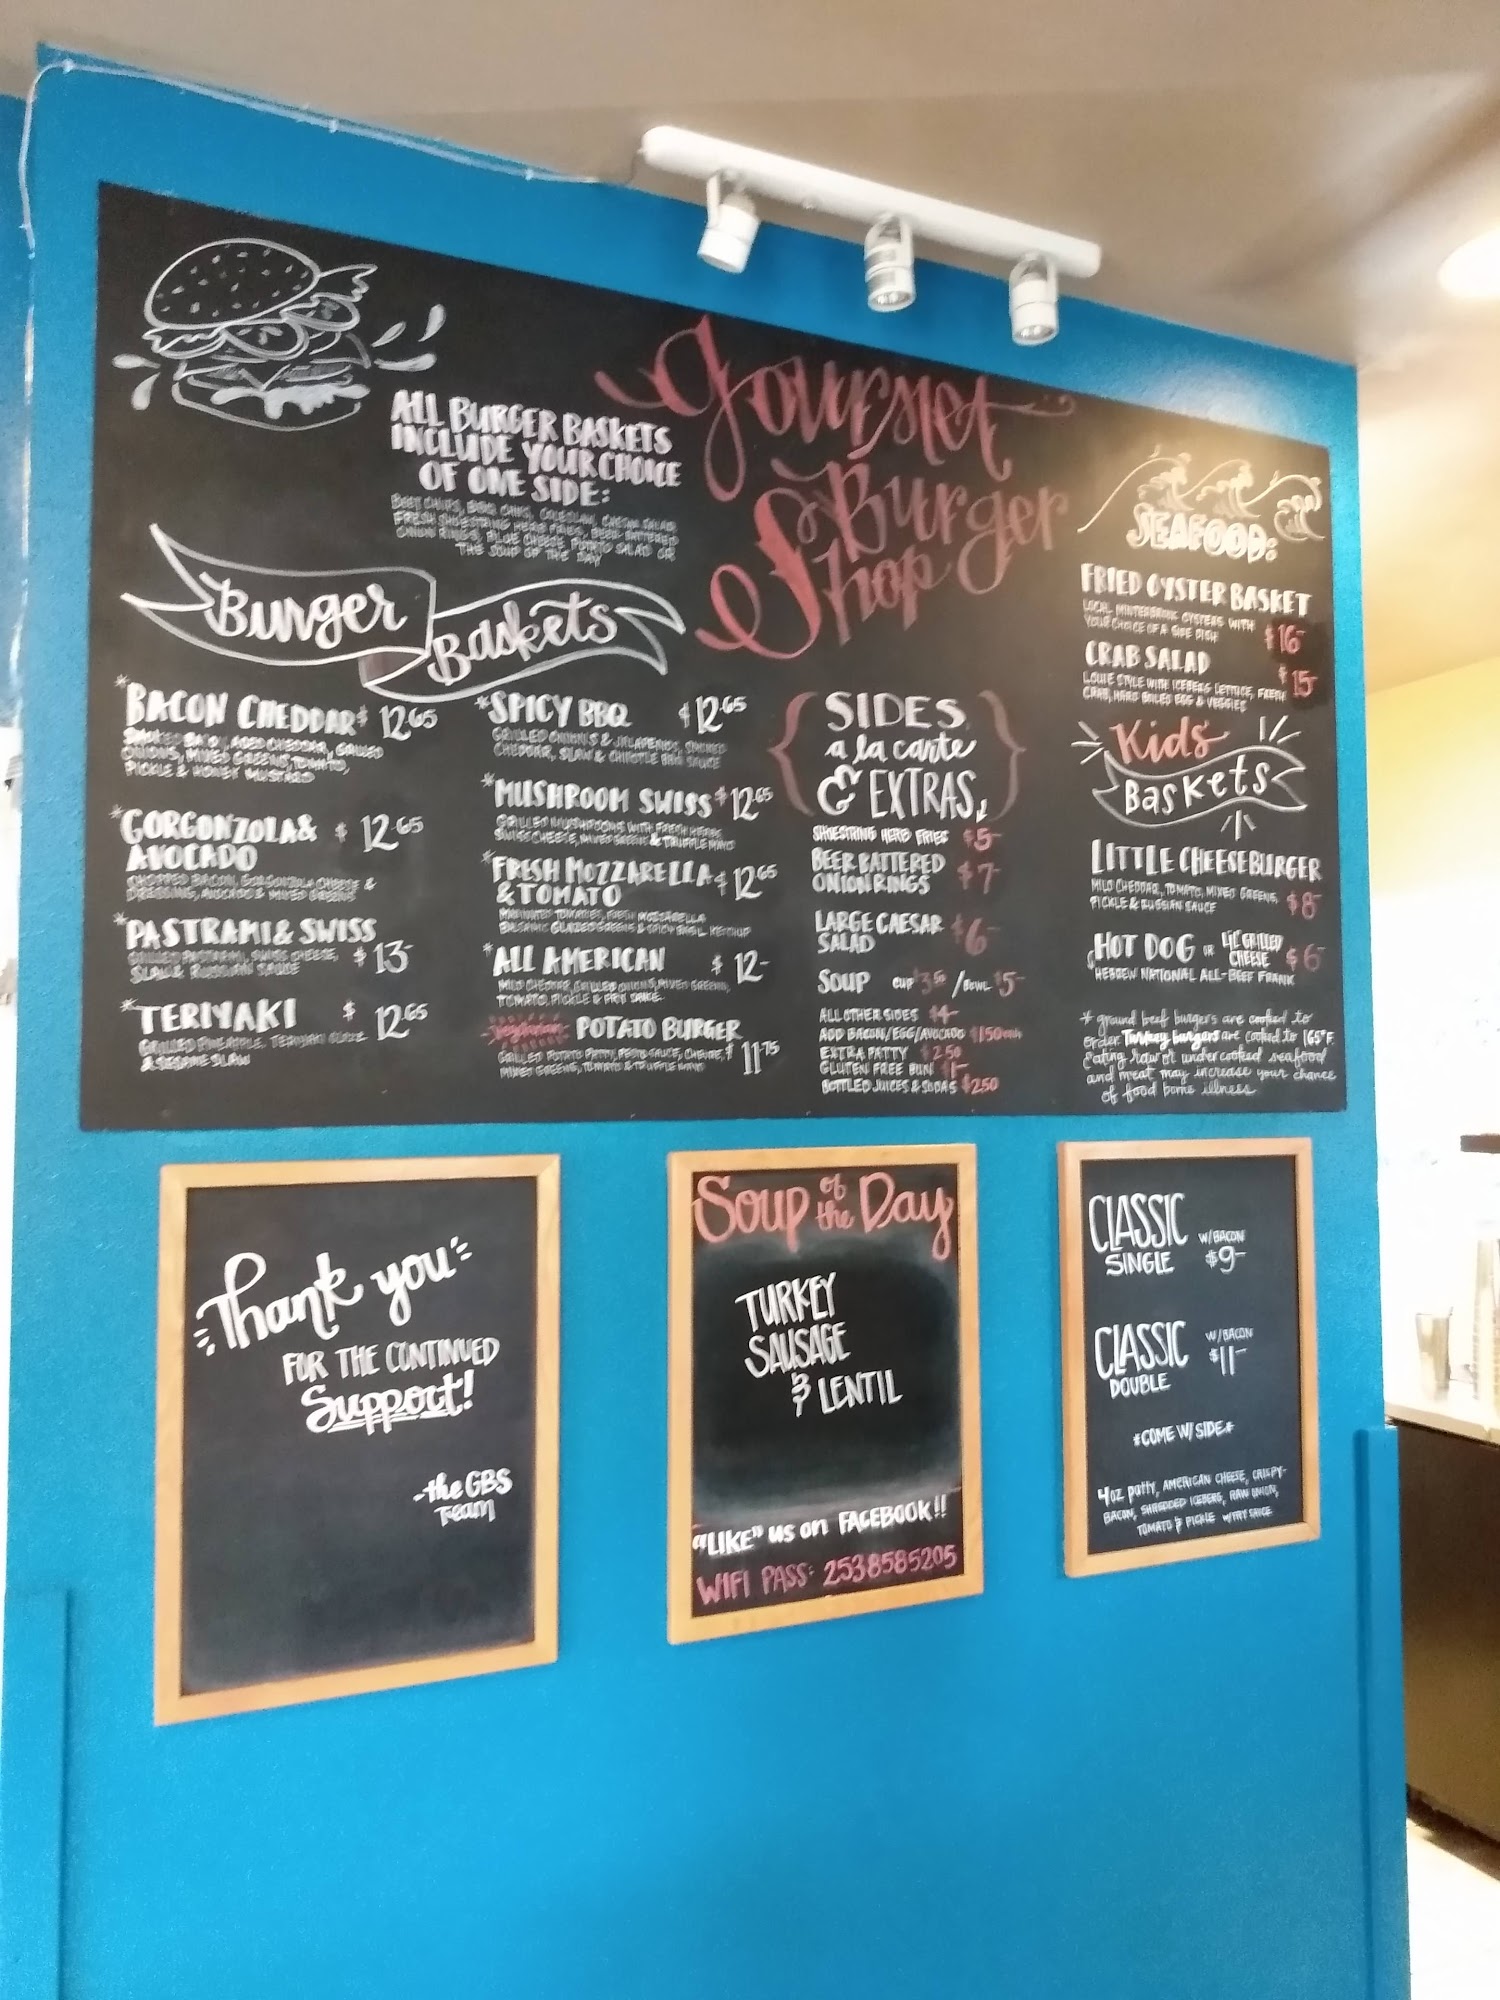 Gourmet
Burger
Shop
ALL BURGER BASKETS
INCLUDE YOUR CHOICE
OF ONE SIDE:
FRESH SHOESTRING HERB FRIES, BEER BATTERED
ONION RINGS, BLUE CHEESE POTATO SALAD OR
THE SOUP OF THE DAY
Burger
Baskets
*BACON CHEDDAR $12.65
SMOKED BACON, AGED CHEDDAR, GRILLED
ONIONS, MIXED GREENS, TOMATO,
PICKLE & HONEY MUSTARD
*GORGONZOLA & $12.65
AVOCADO
CHOPPED BACON, GORGONZOLA CHEESE &
DRESSING, AVOCADO & MIXED GREENS
*PASTRAMI & SWISS
GRILLED PASTRAMI, SWISS CHEESE, $13-
SLAW & RUSSIAN SAUCE
*TERIYAKI $12.65
GRILLED PINEAPPLE, TERIYAKI GLAZE
& SESAME SLAW
*SPICY BBQ $12.65
GRILLED ONIONS & JALAPENOS, SMOKED
CHEDDAR, SLAW & CHIPOTLE BBQ SAUCE
*MUSHROOM SWISS $12.65
GRILLED MUSHROOMS WITH FRESH HERBS,
SWISS CHEESE, MIXED GREENS & TRUFFLE MAYO
*FRESH MOZZARELLA $12.65
& TOMATO
MARINATED TOMATOES, FRESH MOZZARELLA
BALSAMIC GLAZED GREENS & SPICY BASIL KETCHUP
*ALL AMERICAN $12-
MILD CHEDDAR, GRILLED ONIONS, MIXED GREENS,
TOMATO, PICKLE & FRY SAUCE
Vegetarian POTATO BURGER
GRILLED POTATO PATTY, PESTO SAUCE, CHEVRE, $11.75
MIXED GREENS, TOMATO & TRUFFLE MAYO
SIDES
a la carte
& EXTRAS
SHOESTRING HERB FRIES $5-
BEER BATTERED
ONION RINGS $7-
LARGE CAESAR
SALAD $6-
SOUP CUP $3.50 / BOWL $5-
ALL OTHER SIDES $4-
ADD BACON/EGG/AVOCADO $1.50 each
EXTRA PATTY $2.50
GLUTEN FREE BUN $1-
BOTTLED JUICES & SODAS $2.50
SEAFOOD:
FRIED OYSTER BASKET
LOCAL MINTERBROOK OYSTERS WITH
YOUR CHOICE OF A SIDE DISH $16-
CRAB SALAD $15-
LOUIE STYLE WITH ICEBERG LETTUCE, FRESH
CRAB, HARD BOILED EGG & VEGGIES
Kids'
Baskets
LITTLE CHEESEBURGER
MILD CHEDDAR, TOMATO, MIXED GREENS,
PICKLE & RUSSIAN SAUCE $8-
HOT DOG OR LIL' GRILLED CHEESE $6-
HEBREW NATIONAL ALL-BEEF FRANK
* ground beef burgers are cooked to
order. Turkey burgers are cooked to 165°F.
Eating raw or undercooked seafood
and meat may increase your chance
of food borne illness.
Thank you
FOR THE CONTINUED
Support!
-the GBS
Team
Soup of the Day
TURKEY
SAUSAGE
& LENTIL
"LIKE" us on FACEBOOK!!
WIFI PASS: 2538585205
CLASSIC W/BACON
SINGLE $9-
CLASSIC W/BACON
DOUBLE $11-
*COME W/ SIDE*
4oz patty, AMERICAN CHEESE, CRISPY-
BACON, SHREDDED ICEBERG, RAW ONION,
TOMATO & PICKLE W/FRY SAUCE